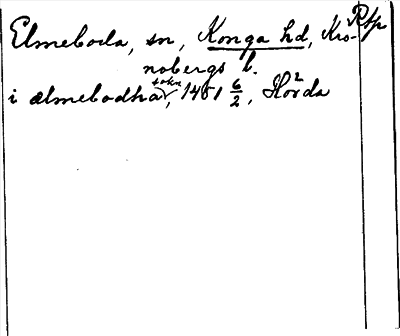 Elmeboda, sn, Konga hd, Kro-
nobergs l.
i ælmebodha sokn, 1451 6/2, Horda